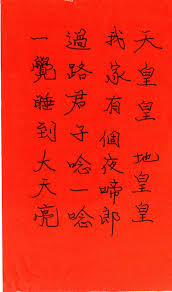 天皇皇 地皇皇
我家有個夜啼郎
過路君子唸一唸
一覺睡到大天亮